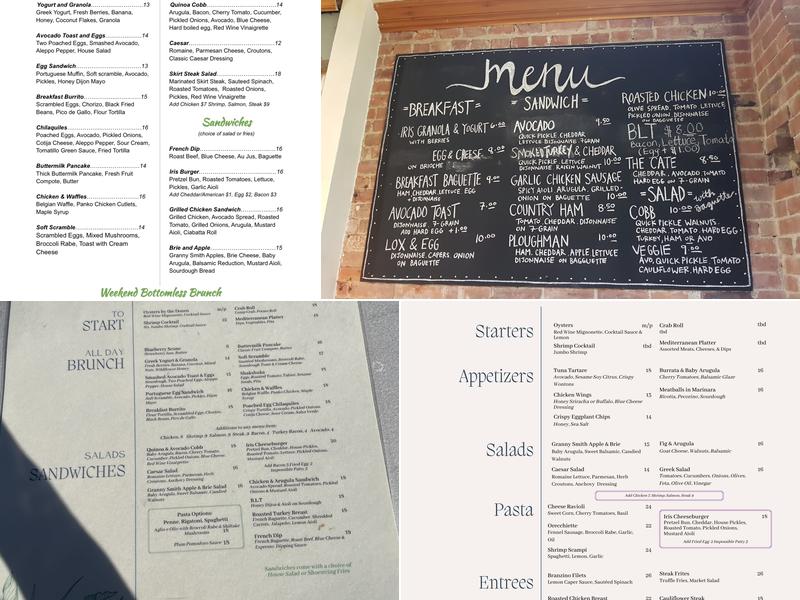 Yogurt and Granola.....................13
Greek Yogurt, Fresh Berries, Banana,
Honey, Coconut Flakes, Granola
Avocado Toast and Eggs.................14
Two Poached Eggs, Smashed Avocado,
Aleppo Pepper, House Salad
Egg Sandwich.....................13
Portuguese Muffin, Soft scramble, Avocado,
Pickles, Honey Dijon Mayo
Breakfast Burrito.....................15
Scrambled Eggs, Chorizo, Black Fried
Beans, Pico de Gallo, Flour Tortilla
Chilaquiles.....................16
Poached Eggs, Avocado, Pickled Onions,
Cotija Cheese, Aleppo Pepper, Sour Cream,
Tomatillo Green Sauce, Fried Tortilla
Buttermilk Pancake.....................14
Thick Buttermilk Pancake, Fresh Fruit
Compote, Butter
Chicken & Waffles.....................16
Belgian Waffle, Panko Chicken Cutlets,
Maple Syrup
Soft Scramble.....................14
Scrambled Eggs, Mixed Mushrooms,
Broccoli Rabe, Toast with Cream
Cheese
Quinoa Cobb.....................14
Arugula, Bacon, Cherry Tomato, Cucumber,
Pickled Onions, Avocado, Blue Cheese,
Hard boiled egg, Red Wine Vinaigrette
Caesar.....................12
Romaine, Parmesan Cheese, Croutons,
Classic Caesar Dressing
Skirt Steak Salad.....................18
Marinated Skirt Steak, Sauteed Spinach,
Roasted Tomatoes, Roasted Onions,
Pickles, Red Wine Vinaigrette
Add Chicken $7 Shrimp, Salmon, Steak $9
Sandwiches
(choice of salad or fries)
French Dip.....................16
Roast Beef, Blue Cheese, Au Jus, Baguette
Iris Burger.....................16
Pretzel Bun, Roasted Tomatoes, Lettuce,
Pickles, Garlic Aioli
Add Cheddar/American $1, Egg $2, Bacon $3
Grilled Chicken Sandwich.....................16
Grilled Chicken, Avocado Spread, Roasted
Tomato, Grilled Onions, Arugula, Mustard
Aioli, Ciabatta Roll
Brie and Apple.....................15
Granny Smith Apples, Brie Cheese, Baby
Arugula, Balsamic Reduction, Mustard Aioli,
Sourdough Bread
Weekend Bottomless Brunch
menu
=BREAKFAST=
IRIS GRANOLA & YOGURT 6.00
WITH BERRIES
EGG & CHEESE 8.00
ON BRIOCHE
BREAKFAST BAGUETTE 9.00
HAM, CHEDDAR, LETTUCE EGG
+ DIJONNAISE
AVOCADO TOAST 7.00
DIJONNAISE 7-GRAIN
ADD HARD EGG +1.00
LOX & EGG 10.00
DIJONNAISE, CAPERS, ONION
ON BAGUETTE
= SANDWICH =
AVOCADO 9.50
QUICK PICKLE CHEDDAR
LETTUCE DIJONNAISE 7GRAIN
SMOKED TURKEY & CHEDDAR
QUICK PICKLE, LETTUCE 10.00
DIJONNAISE RAISIN WALNUT
GARLIC CHICKEN SAUSAGE
SPICY AIOLI ARUGULA, GRILLED-
ONION ON BAGUETTE 10.00
COUNTRY HAM 8.50
TOMATO CHEDDAR, DIJONNAISE
ON 7 GRAIN
PLOUGHMAN 10.00
HAM, CHEDDAR, APPLE LETTUCE
DIJONNAISE ON BAGGUETTE
ROASTED CHICKEN 10.00
OLIVE SPREAD, TOMATO LETTUCE
PICKLED ONION, DIJONNAISE
ON BAGUETTE
BLT $8.00
Bacon, Lettuce, Tomato
(Egg + $1.00)
THE CATE 8.50
CHEDDAR, AVOCADO, TOMATO
HARD EGG ON 7-GRAIN
=SALAD= with baguette
COBB 10.00
QUICK PICKLE, WALNUTS,
CHICKEN, TOMATO, HARD EGG
TURKEY, HAM OR AVO
VEGGIE 9.00
AVO, QUICK PICKLE, TOMATO
CAULIFLOWER, HARD EGG
TO
START
ALL DAY
BRUNCH
SALADS
SANDWICHES
Oysters by the Dozen m/p
Shrimp Cocktail
Crab Roll 18
Mediterranean Platter 18
Blueberry Scone 6
Greek Yogurt & Granola 14
Smashed Avocado Toast & Eggs 15
Portuguese Egg Sandwich
Breakfast Burrito
Buttermilk Pancake
Soft Scramble
Shakshuka
Chicken & Waffles
Poached Egg Chilaquiles
Additions to any menu item:
Quinoa & Avocado Cobb
Caesar Salad
Granny Smith Apple & Brie Salad
Pasta Options:
Penne, Rigatoni, Spaghetti
Aglio e Olio with Broccoli Rabe & Shiitake
Mushrooms 18
Plum Pomodoro Sauce 18
Iris Cheeseburger
Add Bacon 3 Fried Egg 2
Impossible Patty 2
Chicken & Arugula Sandwich
B.L.T
Roasted Turkey Breast
French Dip
Sandwiches come with a choice of
House Salad or Shoestring Fries
Starters
Oysters m/p
Red Wine Mignonette, Cocktail Sauce &
Lemon
Shrimp Cocktail tbd
Jumbo Shrimp
Crab Roll tbd
tbd
Mediterranean Platter tbd
Assorted Meats, Cheeses, & Dips
Appetizers
Tuna Tartare 18
Avocado, Sesame Soy Citrus, Crispy
Wontons
Chicken Wings 15
Honey Sriracha or Buffalo, Blue Cheese
Dressing
Crispy Eggplant Chips 14
Honey, Sea Salt
Burrata & Baby Arugula 16
Cherry Tomatoes, Balsamic Glaze
Meatballs in Marinara 16
Ricotta, Pecorino, Sourdough
Salads
Granny Smith Apple & Brie 15
Baby Arugula, Sweet Balsamic, Candied
Walnuts
Caesar Salad 14
Romaine Lettuce, Parmesan, Herb
Croutons, Anchovy Dressing
Fig & Arugula 16
Goat Cheese, Walnuts, Balsamic
Greek Salad 16
Tomatoes, Cucumbers, Onions, Olives,
Feta, Olive Oil, Vinegar
Add Chicken 5 Shrimp, Salmon, Steak 8
Pasta
Cheese Ravioli 24
Sweet Corn, Cherry Tomatoes, Basil
Orecchiette 22
Fennel Sausage, Broccoli Rabe, Garlic,
Oil
Shrimp Scampi 24
Spaghetti, Lemon, Garlic
Iris Cheeseburger 18
Pretzel Bun, Cheddar, House Pickles,
Roasted Tomato, Pickled Onions,
Mustard Aioli
Add Fried Egg 2 Impossible Patty 2
Entrees
Branzino Filets 26
Lemon Caper Sauce, Sautéed Spinach
Roasted Chicken Breast 22
Steak Frites 28
Truffle Fries, Market Salad
Cauliflower Steak 18